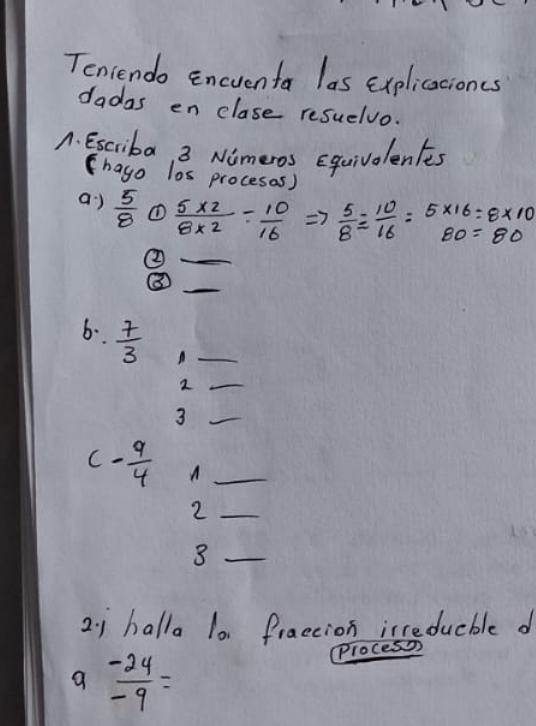 Teniendo Encuenta las Explicaciones
dadas en clase resuelvo.
1. Escriba 3 Números Equivalentes
(hago los procesos)
a.) 5/8 ① 5x2/8x2 = 10/16 => 5/8 = 10/16 = 5x16 = 8x10
80 = 80
② —
③ —
b.. 7/3 1 —
2 —
3 —
c - 9/4 1 —
2 —
3 —
2.) halla la fracción irreducble d
Proceso
a -24/-9 =